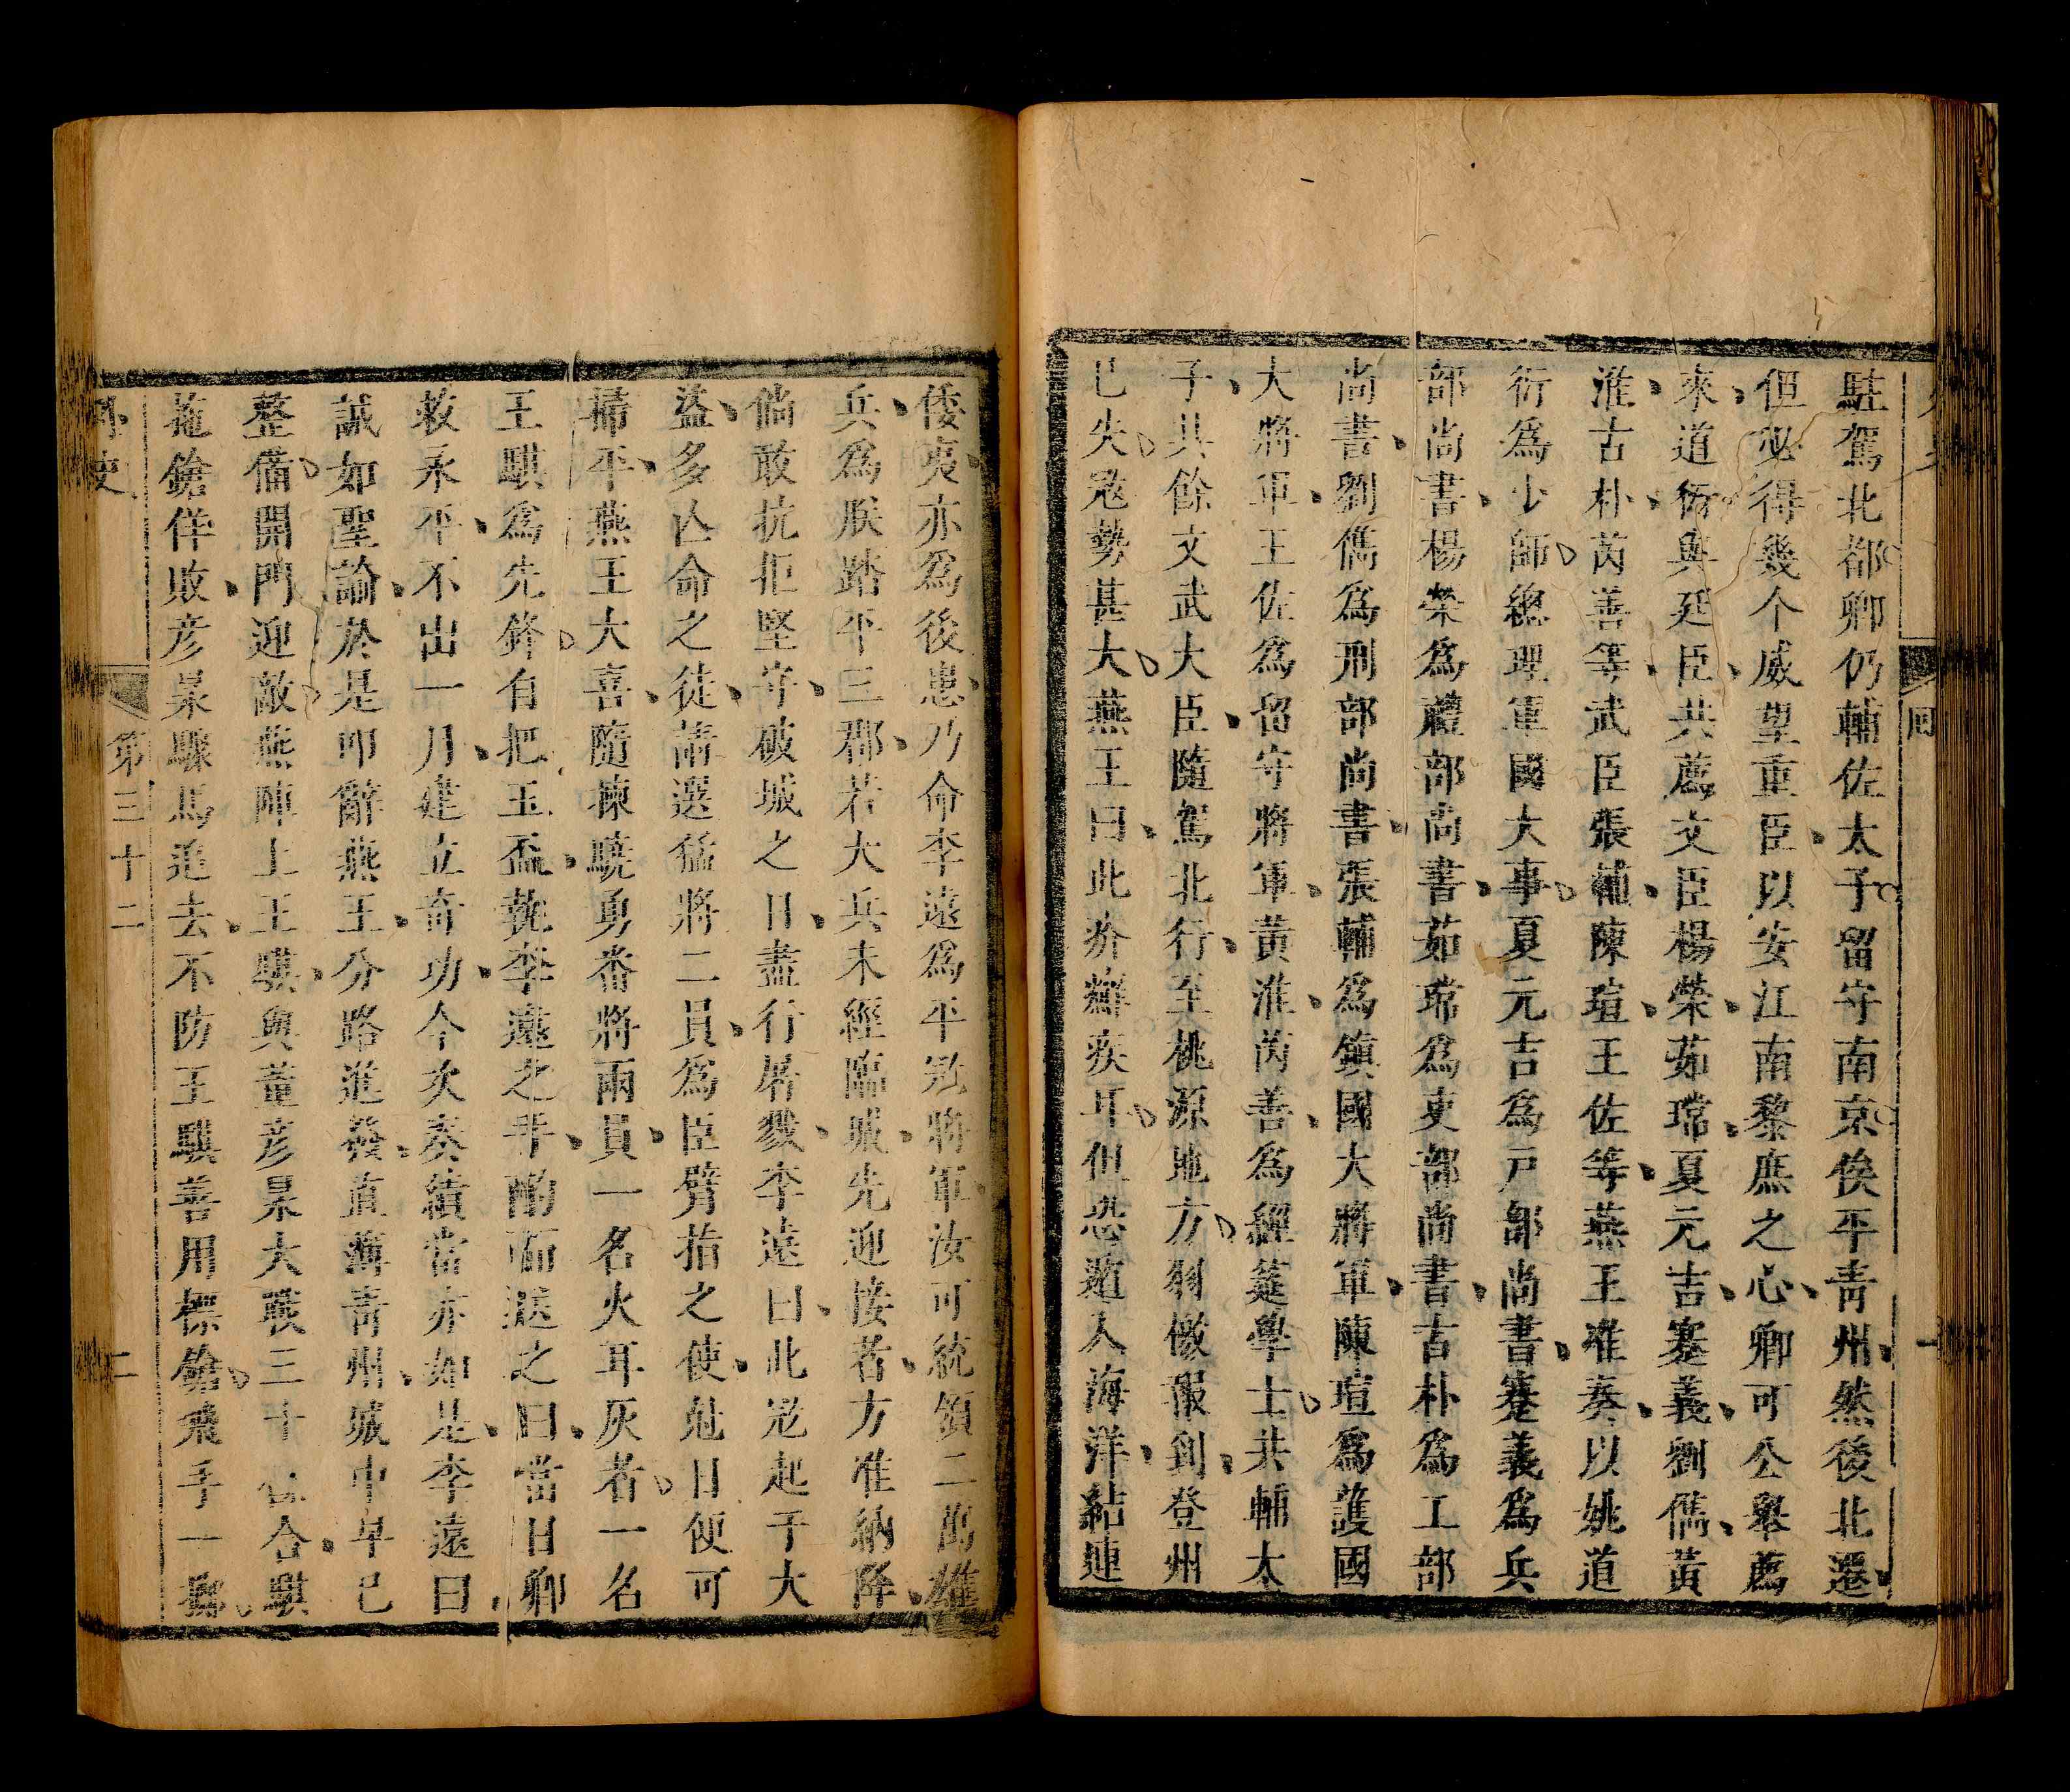 駐駕北都卿仍輔佐太子留守南京俟平靑州然後北還
但必得幾个威望重臣以安江南黎庶之心卿可公舉薦
來道衍與廷臣共薦文臣楊榮茹瑺夏元吉蹇義劉儁黃
淮古朴芮善等武臣張輔陳瑄王佐等燕王准奏以姚道
衍爲少師總理軍國大事夏元吉爲戸部尚書蹇義爲兵
部尚書楊榮爲禮部尚書茹瑺爲吏部尚書古朴爲工部
尚書劉儁爲刑部尚書張輔爲鎭國大將軍陳瑄爲護國
大將軍王佐爲留守將軍黃淮芮善爲經筵學士共輔太
子其餘文武大臣隨駕北行至桃源地方羽檄報到登州
已失冦勢甚大燕王曰此疥癬疾耳但恐遁入海洋結連
倭夷亦爲後患乃命李遠爲平冦將軍汝可統領二萬雄
兵爲朕踏平三郡若大兵未經臨城先迎接者方准納降
倘敢抗拒堅守破城之日盡行屠戮李遠曰此冦起于大
盜多亾命之徒請選猛將二員爲臣臂指之使尅日便可
掃平燕王大喜隨揀驍勇番將兩員一名火耳灰者一名
王騏爲先鋒有把玉盃執李遠之手酌而送之曰當日卿
救永平不出一月建立奇功今次奏績當亦如是李遠曰
誠如聖諭於是叩辭燕王分路進發直薄靑州城中早已
整備開門迎敵燕陣上王騏與董彦杲大戰三十合騏
拖鎗佯敗彦杲驟馬追去不防王騏善用標鎗飛手一擲
外史
第三十二
二